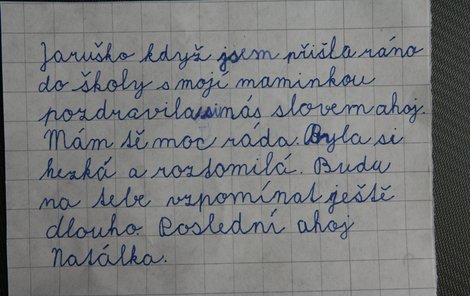 Jaruško když jsem přišla ráno
do školy s mojí maminkou
pozdravila si nás slovem ahoj.
Mám tě moc ráda. Byla si
hezká a roztomilá. Budu
na tebe vzpomínat ještě
dlouho Poslední ahoj
Natálka.